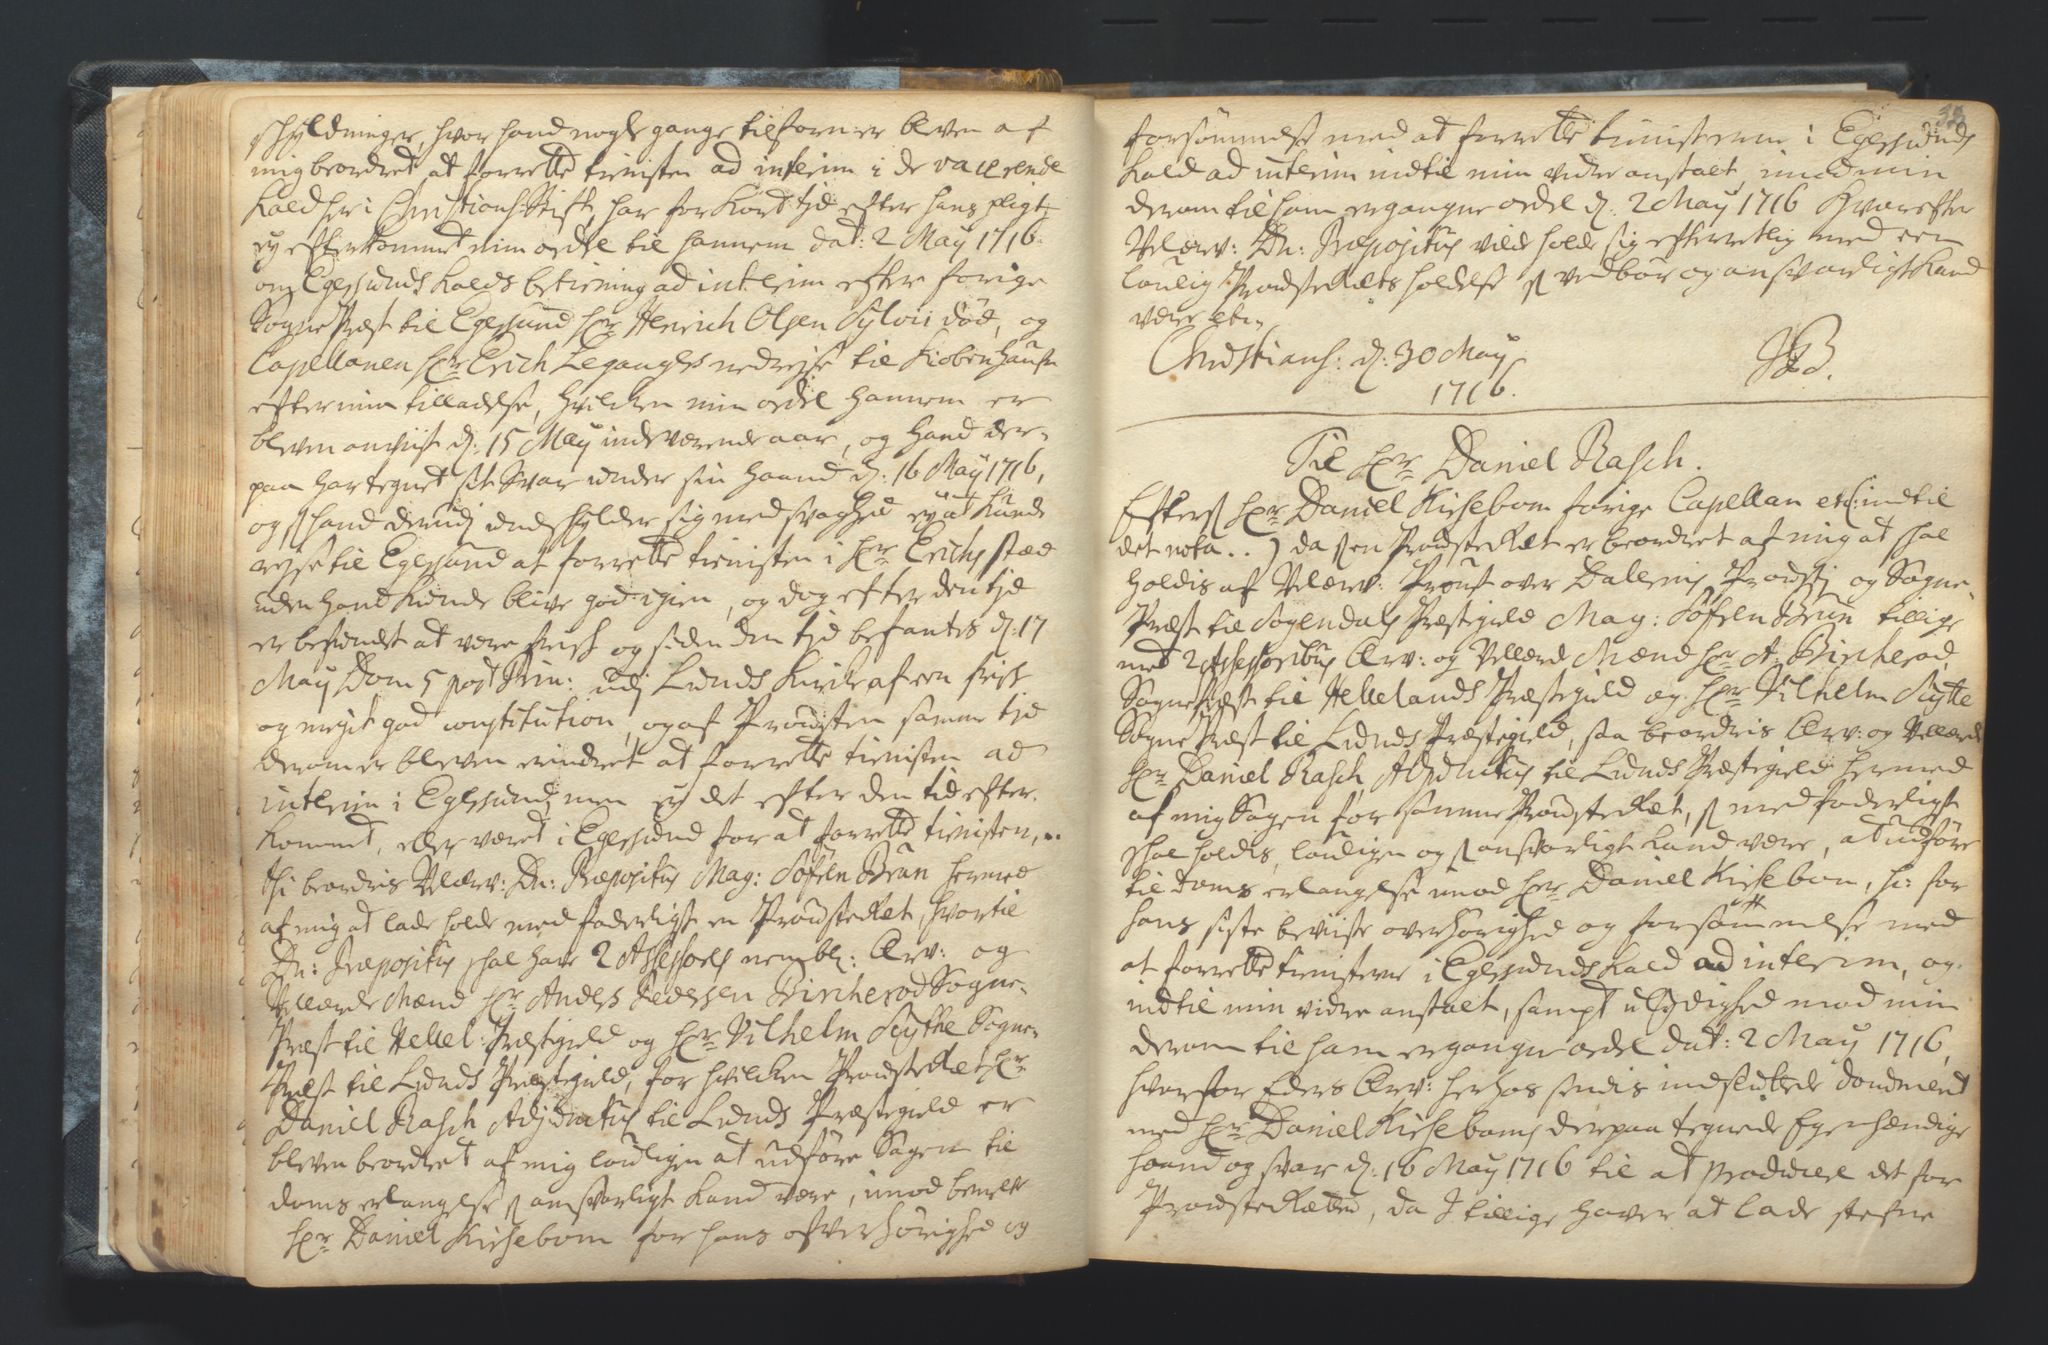 skyldninger, hvor hand nogle gange tilforn er bleven af
mig beordret at forrette tienisten ad interim i de vacerende
Kald her i Christians: Stift, har for kort tjd efter hans pligt
ey efterkommet min ordre til hannem dat: 2 May 1716.
om Egersunds Kalds betiening ad interim efter forige
Sogne Præst til Egersund hr Henrich Olsen Sylvii död, og
Capellanen hr Erich Leganger nedrejse til Kiöbenhaufn
efter min tilladelse, hvilcken min ordre hannem er
bleven anviist d: 15 May indeværende aar, og hand der-
paa har tegnet sit Svar under sin haand d: 16 May 1716,
og hand derudj undskylder sig med svaghed ey at kunde
rejse til Egersund at forrette tienisten i hr Erichs stæd
uden hand kunde blive god igien, og dog efter den tjd
er befundet at være frisk og siden den tjd befantes d: 17
May Dom 5 post Trin: udj Lunds Kircke af een frisk
og meget god constitution, og af Prousten samme tjd
derom er bleven erindret at forrette tienisten ad
interim i Egersund, men ey det efter den tid efter-
kommet, eller været i Egersund for at forrette tienisten,..
thi beordris Velærv: Dn: Præpositus Mag: Söfren Brun hermed
af mig at lade holde med forderligste en ProusteRæt, hvortil
Dn: Præpositus skal have 2 Assessores nembl: Ærv: og
Vellærde Mænd hr Anders Pedersen Bircherod Sogne-
Præst til Hellel: Præstegield og hr Vilhelm Sÿtte Sogne-
Præst til Lunds Præstegield, for hvilcken ProusteRæt hr
Daniel Rasch Adjunctus til Lunds Præstegield er
bleven beordret af mig louligen at udföre Sagen til
doms erlangelse s ansvarligt kand være, imod bemelte
hr Daniel Kirsebom for hans ofverhörighed og
forsömmelse med at forrette tienisterne i Egersunds
Kald ad interim indtil min vidre anstalt imod min
derom til ham ergangne ordre d: 2 May 1716 Hvorefter
Velærv: Dn: Præpositus vilde holde sig efterretlig med een
loulig ProusteRæts holdelse s vedbör og ansvarligt kand
være etc.
Christians: d: 30 May
1716.
JB.
Til hr Daniel Rasch.
Efters hr Daniel Kirsebom forige Capellan etc: indtil
det nota ..) da s en ProusteRæt er beordret af mig at skal
holdis af Velærv: Proust over Dallernis Proustj og Sogne-
Præst til Sogendals Præstegield Mag: Söfren Brun tillige
med 2 Assessoribus Ærv: og Vellærde Mænd hr A: Bircherod
SognePræst til Hellelands Præstegield og hr Vilhelm Sÿtte
SognePræst til Lunds Præstegield, saa beordris Ærv: og Vellærde
hr Daniel Rasch Adjunctus til Lunds Præstegield hermed
af mig Sagen for samme ProusteRæt, s med foderligste
skal holdis, louligen og s ansvarligt kand være, at udföre
til doms erlangelse imod hr Daniel Kirsebom, h: for
hans siste beviste overhörighed og forsömmelse med
at forrette tienisterne i Egersunds Kald ad interim, og
indtil min vidre anstalt, sampt ulydighed mod min
derom til ham ergangne ordre dat: 2 May 1716,
hvorfor Eders Ærv: herhos sendis indsluttede document
med hr Daniel Kirseboms derpaa tegnede Egenhændige
haand og svar d: 16 May 1716 til at producere det for
ProusteRetten, da I tillige haver at lade stefne